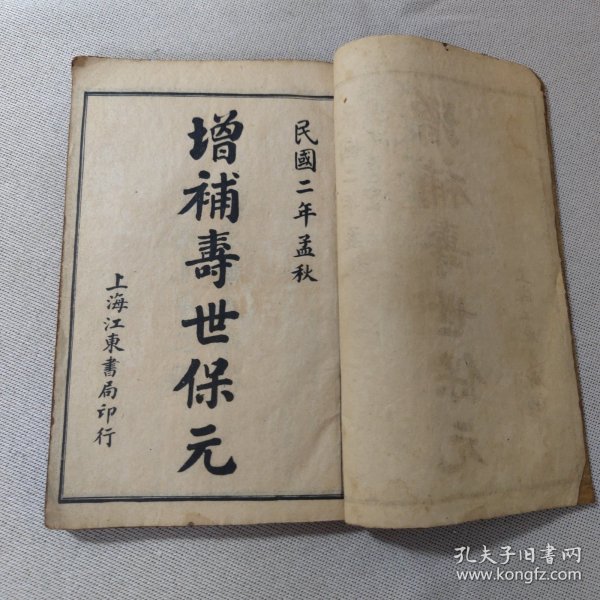 民國二年孟秋
增補壽世保元
上海江東書局印行
孔夫子旧书网
www.kongfz.com